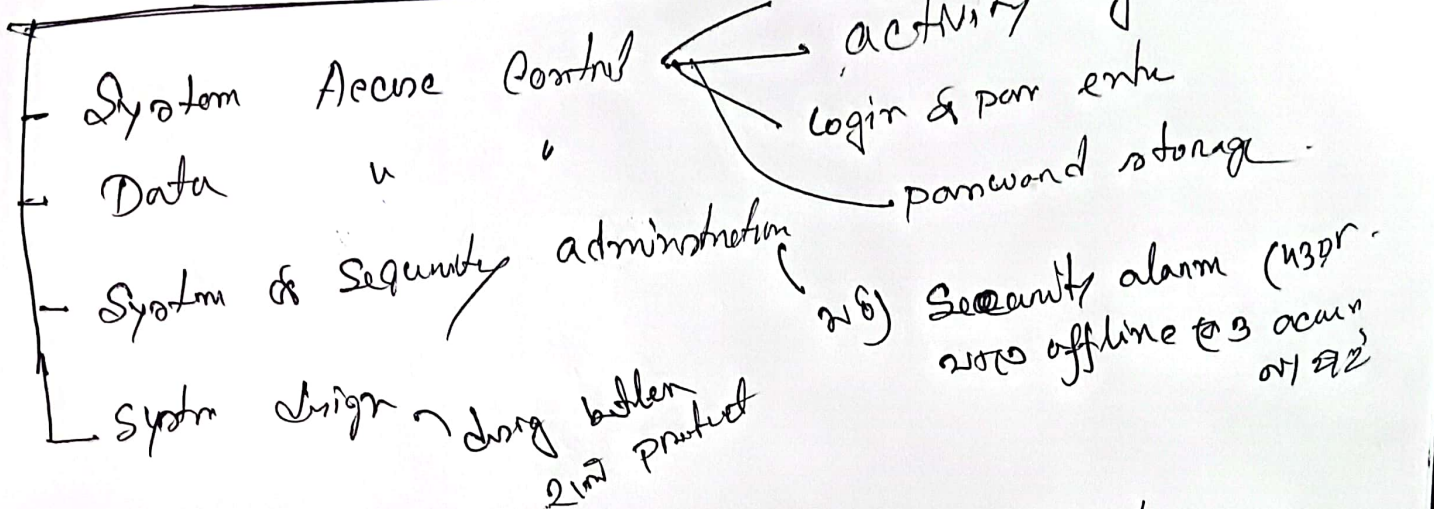 - System Access Control
activity
Login & pass ente
password storage.
- Data " "
- System & Sequrity administration
Security alarm
offline ও access না হয়
- System design
desig better
হলে protect